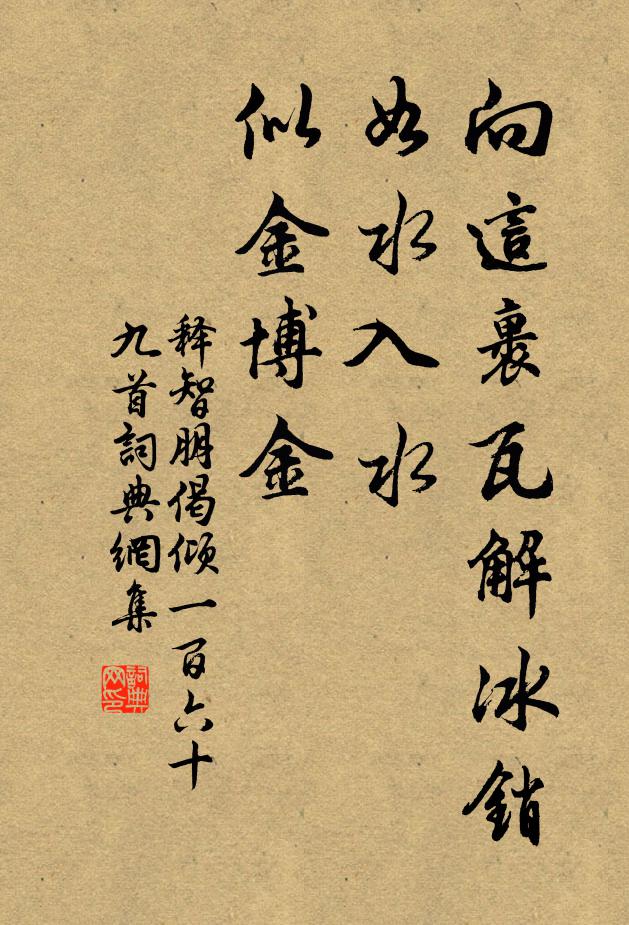 向這裹瓦解冰銷
如水入水
似金博金
释智朋偈倾一百六十
九首詞典網集
詞典网印